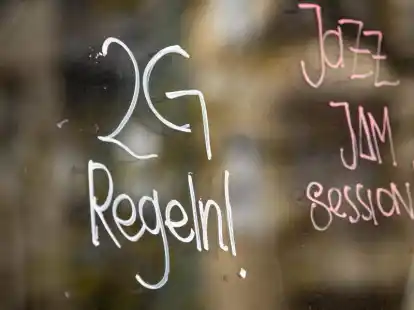 2G
Regeln!
Jazz
JAM
SESSION